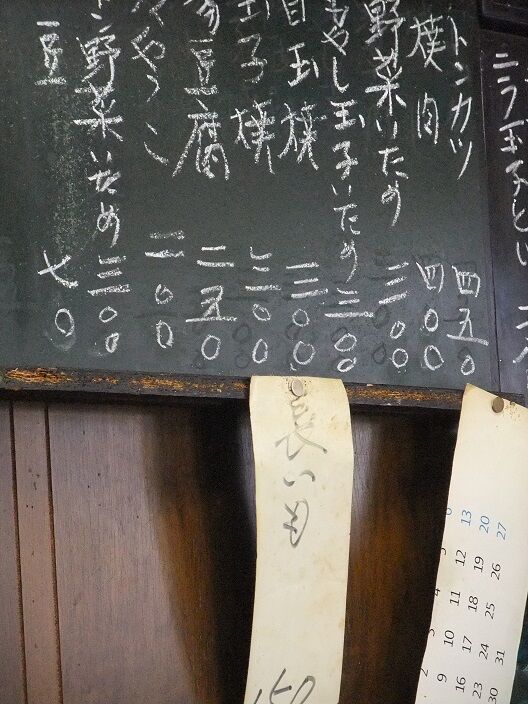 ニラ玉子とじ
トンカツ 四五〇
焼肉 四〇〇
野菜いため 三〇〇
もやし玉子いため 三〇〇
目玉焼 三〇〇
玉子焼 三〇〇
湯豆腐 二五〇
やっこ 二〇〇
野菜いため 三〇〇
豆 七〇
長いも
50
6 13 20 27
5 12 19 26
4 11 18 25
3 10 17 24 31
2 9 16 23 30